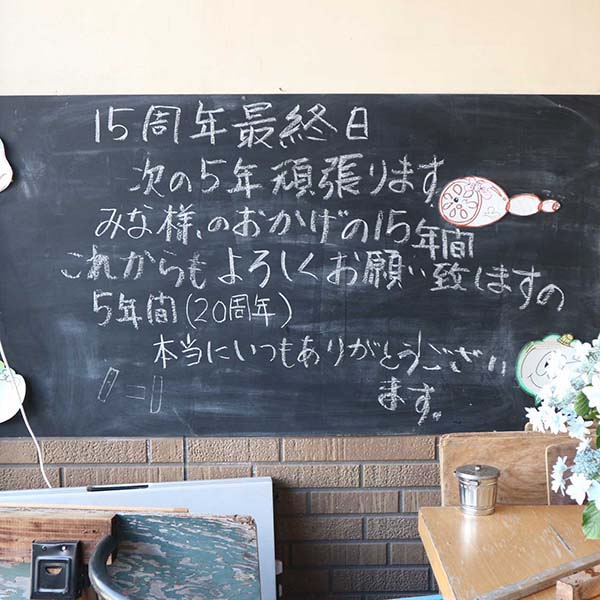 15周年最終日
次の5年頑張ります
みな様、のおかげの15年間
これからもよろしくお願い致しますの
5年間(20周年)
本当にいつもありがとうござい
ます。